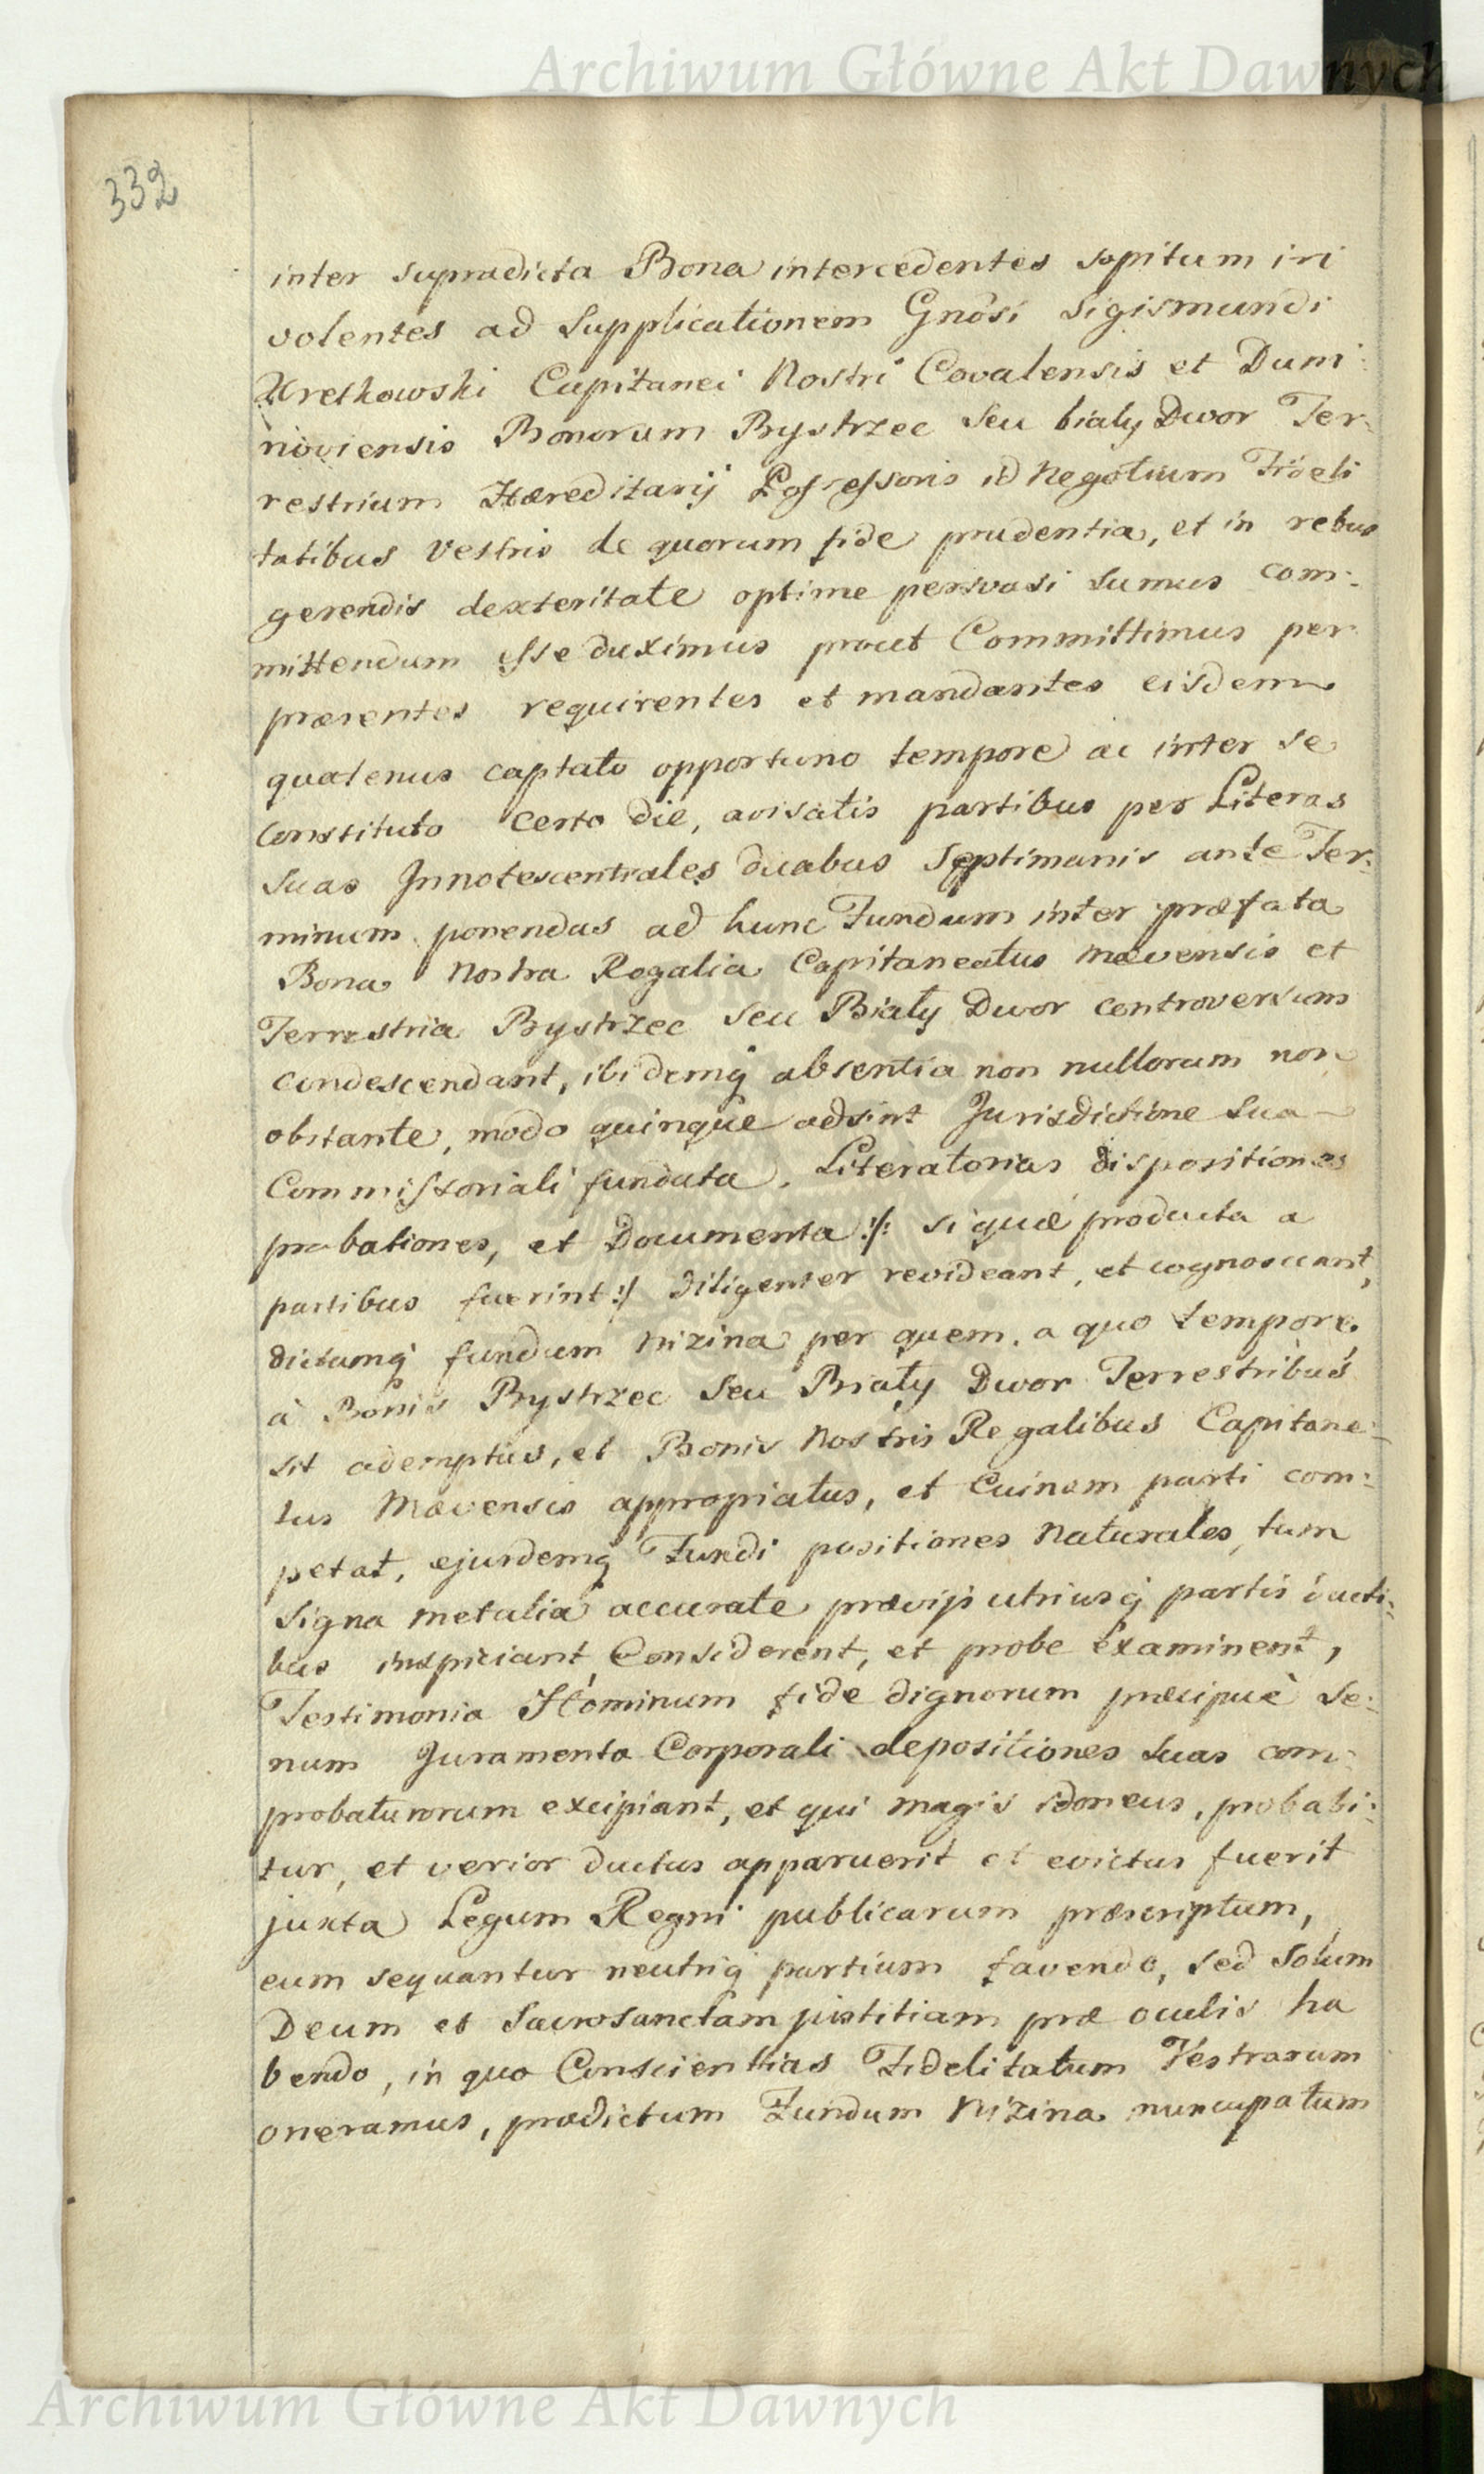 Archiwum Główne Akt Dawnych
332
inter supradicta Bona intercedentes sopitum iri
volentes ad Supplicationem Gnosi Sigismundi
Kretkowski Capitanei Nostri Covalensis et Dum:
noviensis Bonorum Bystrzec seu bialy Dwor Ter:
restrium Hæreditarij Possessoris id Negotium Fideli
tatibus Vestris de quorum fide prudentia, et in rebus
gerendis dexteritate optime persvasi sumus com:
mittendum esse duximus prout Committimus per
præsentes requirentes et mandantes eisdem
quatenus captato opportuno tempore ac inter se
constituto certo die, avisatis partibus per Literas
suas Innotescentiales duabus Septimanis ante Ter:
minum ponendas ad hunc Fundum inter præfata
Bona Nostra Regalia Capitaneatus Mævensis et
Terrestria Bystrzec seu Biały Dwor controversum
condescendant, ibidemq absentia non nullorum non
obstante, modo quinque adsint Jurisdictione sua
Commissoriali fundata, Literatorias dispositiones
probationes, et Documenta :/: si quæ producta a
partibus fuerint :/ diligenter revideant, et cognoscant,
dictumq fundum Nizina per quem, a quo tempore,
à Bonis Bystrzec seu Biały Dwor Terrestribus
sit ademptus, et Bonis Nostris Regalibus Capitanea-
tus Mævensis appropriatus, et cuinam parti com:
petat, ejusdemq Fundi positiones Naturales, tum
signa metalia accurate prævijs utriusq partis ducti:
bus inspiciant, Considerent, et probe examinent,
Testimonia Hominum fide dignorum præcipuè Se:
num Juramento Corporali depositiones suas com:
probaturorum excipiant, et qui magis idoneus, probabi:
tur, et verior ductus apparuerit et evictus fuerit
juxta Legum Regni publicarum præscriptum,
eum sequantur neutriq partium favendo, sed Solum
Deum et Sacrosanctam justitiam præ oculis ha
bendo, in quo Conscientias Fidelitatum Vestrarum
oneramus, prædictum Fundum Nizina nuncupatum
Archiwum Główne Akt Dawnych